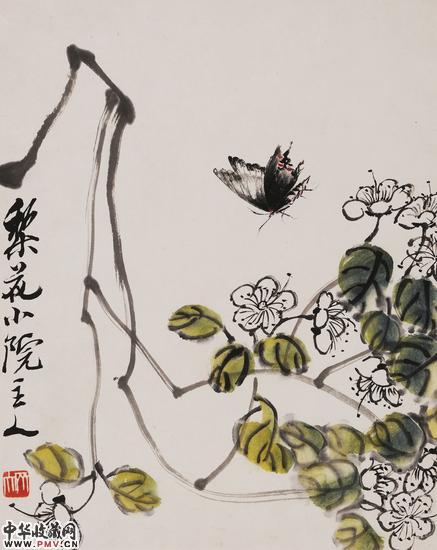 梨花小院主人
中华收藏网
WWW.PMV.CN